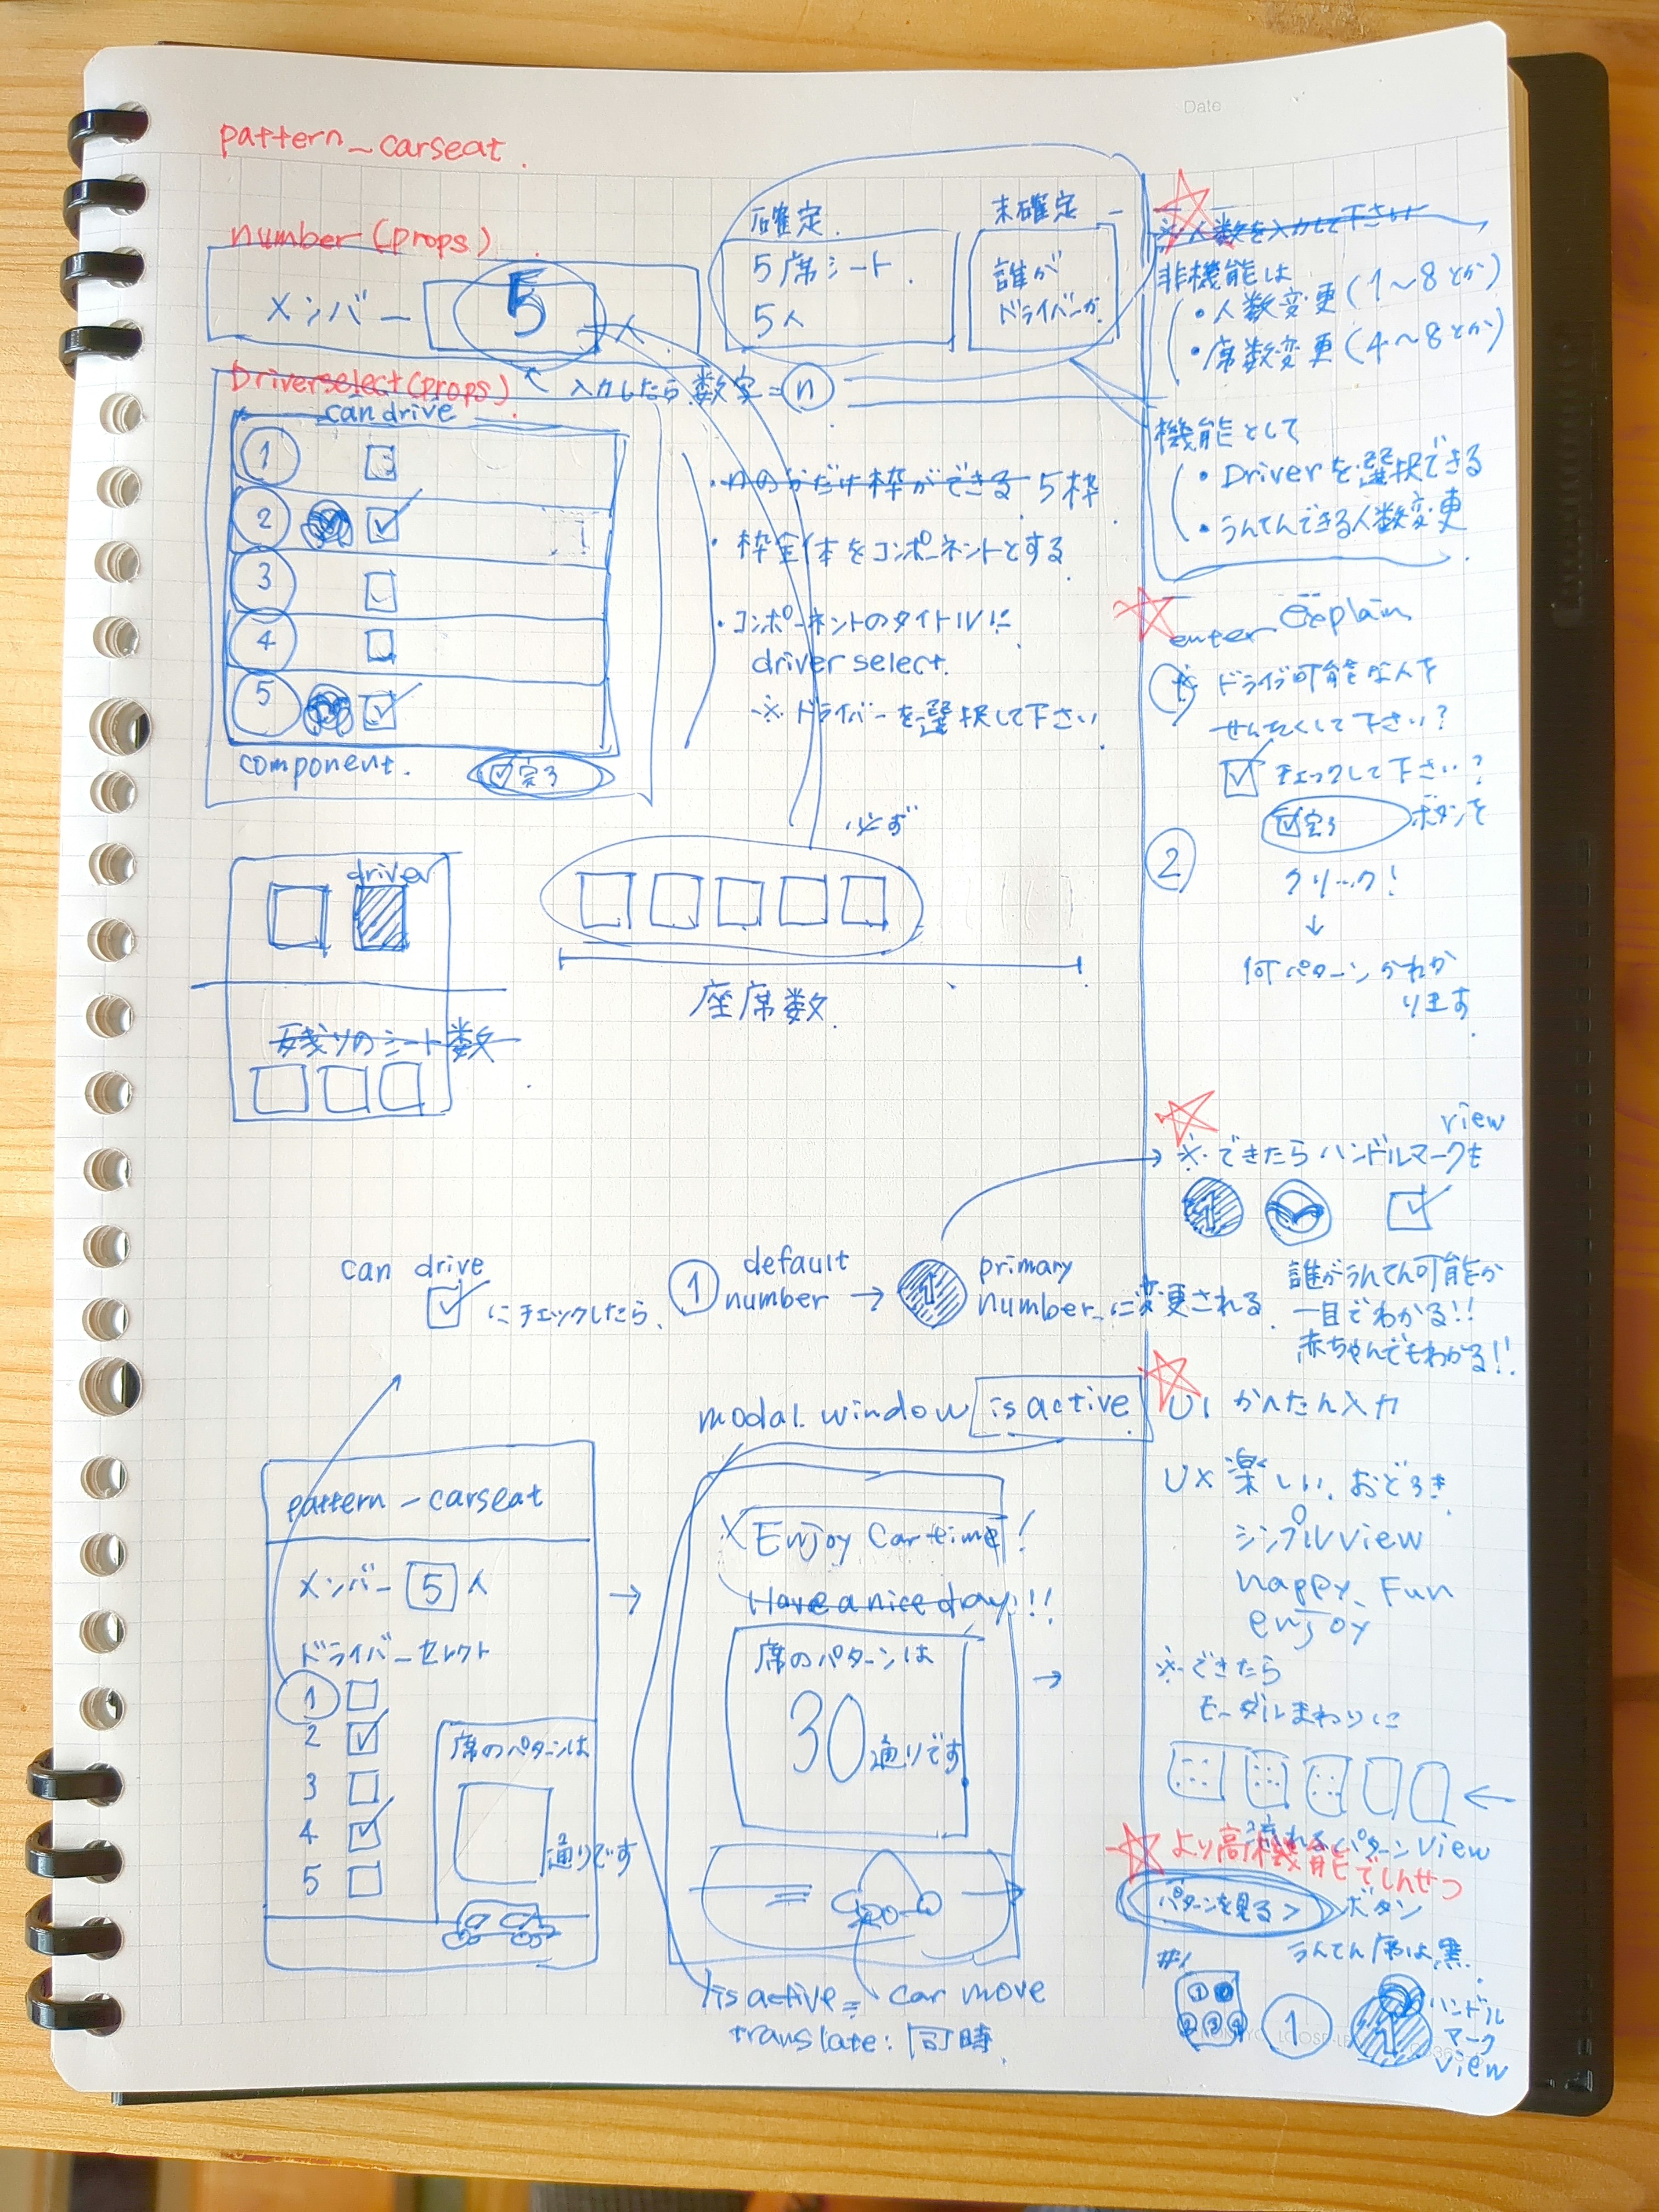 Date
pattern_carseat.
number(props)
メンバー 5 人
確定
5席シート
5人
未確定
誰が
ドライバーか
Driverselect(props)
入力したら数字=n
can drive
1
2
3
4
5
component.
完了
・nのかだけ枠ができる 5枠
・枠全体をコンポーネントとする
・コンポーネントのタイトルに
driver select.
※ドライバーを選択して下さい
driver
残りのシート数
必ず
座席数
can drive
にチェックしたら、
1 default number → 1 primary number に変更される
pattern-carseat
メンバー 5 人
ドライバーセレクト
1
2
3
4
5
席のパターンは
通りです
→
modal window is active
Enjoy Car time!
Have a nice day!!!
席のパターンは
30通りです
→
is active = car move
translate: 同時
※人数を入力して下さい
非機能は
・人数変更(1〜8とか)
・席数変更(4〜8とか)
機能として
・Driverを選択できる
・うんてんできる人数変更
enter explain
① ドライブ可能な人を
せんたくして下さい?
チェックして下さい?
② 完了 ボタンを
クリック!
↓
何パターンかわか
ります
view
※できたらハンドルマークも
1
誰がうんてん可能か
一目でわかる!!
赤ちゃんでもわかる!!
UI かんたん入力
UX 楽しい、おどろき
シンプルview
happy、Fun
enjoy
※できたら
モーダルまわりに
←
流れるパターンview
より高機能でしんせつ
パターンを見る> ボタン
うんてん席は黒
#1
1
2 3 4
1
1
ハンドル
マーク
view